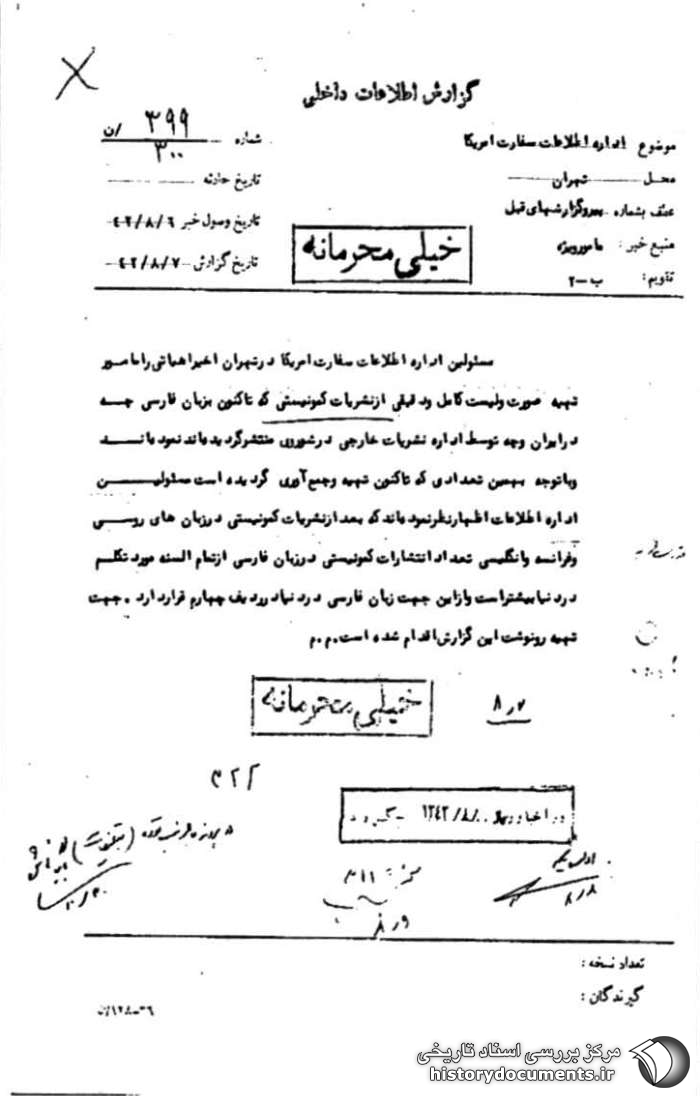 گزارش اطلاعات داخلی
موضوع اداره اطلاعات سفارت امریکا
محل تهران
عطف بشماره پیروگزارشهای قبل
منبع خبر : مامورویژه
تقویم : ب-۲
شماره ۳۹۹/ن
۳۰۰
تاریخ حادثه
تاریخ وصول خبر ۴۲/۸/۶
تاریخ گزارش ۴۲/۸/۷
خیلی محرمانه
مسئولین اداره اطلاعات سفارت امریکا درتهران اخیراهیاتی رامامور
تهیه صورت ولیست کامل ودقیقی ازنشریات کمونیستی که تاکنون بزبان فارسی چه
درایران وچه توسط اداره نشریات خارجی درشوروی منتشرگردیده‌اند نموده‌اند
وباتوجه بهمین تعدادی که تاکنون تهیه وجمع‌آوری گردیده است مسئولین
اداره اطلاعات اظهارنظرنموده‌اند که بعد ازنشریات کمونیستی درزبان های روسی
وفرانسه وانگلیسی تعداد انتشارات کمونیستی درزبان فارسی ازتمام السنه مورد تکلم
دردنیا بیشتراست وازاین جهت زبان فارسی دردنیا درردیف چهارم قراردارد . جهت
تهیه رونوشت این گزارش اقدام شده است.م.م
خیلی محرمانه
۸٫۷
۳۲۲
در اخبار روزانه ۱۳۴۲/۸/
۸/۸
۳۱۱
تعداد نسخه :
گیرندگان :
مرکز بررسی اسناد تاریخی
historydocuments.ir